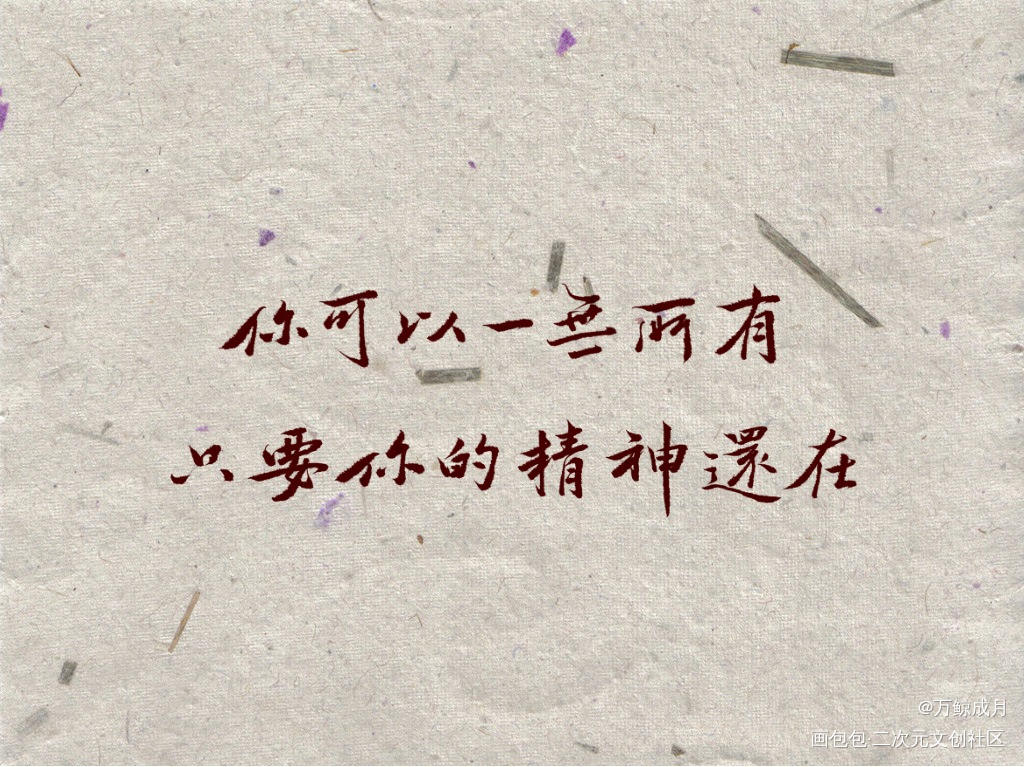 你可以一無所有
只要你的精神還在
@万鲸成月
画包包·二次元文创社区